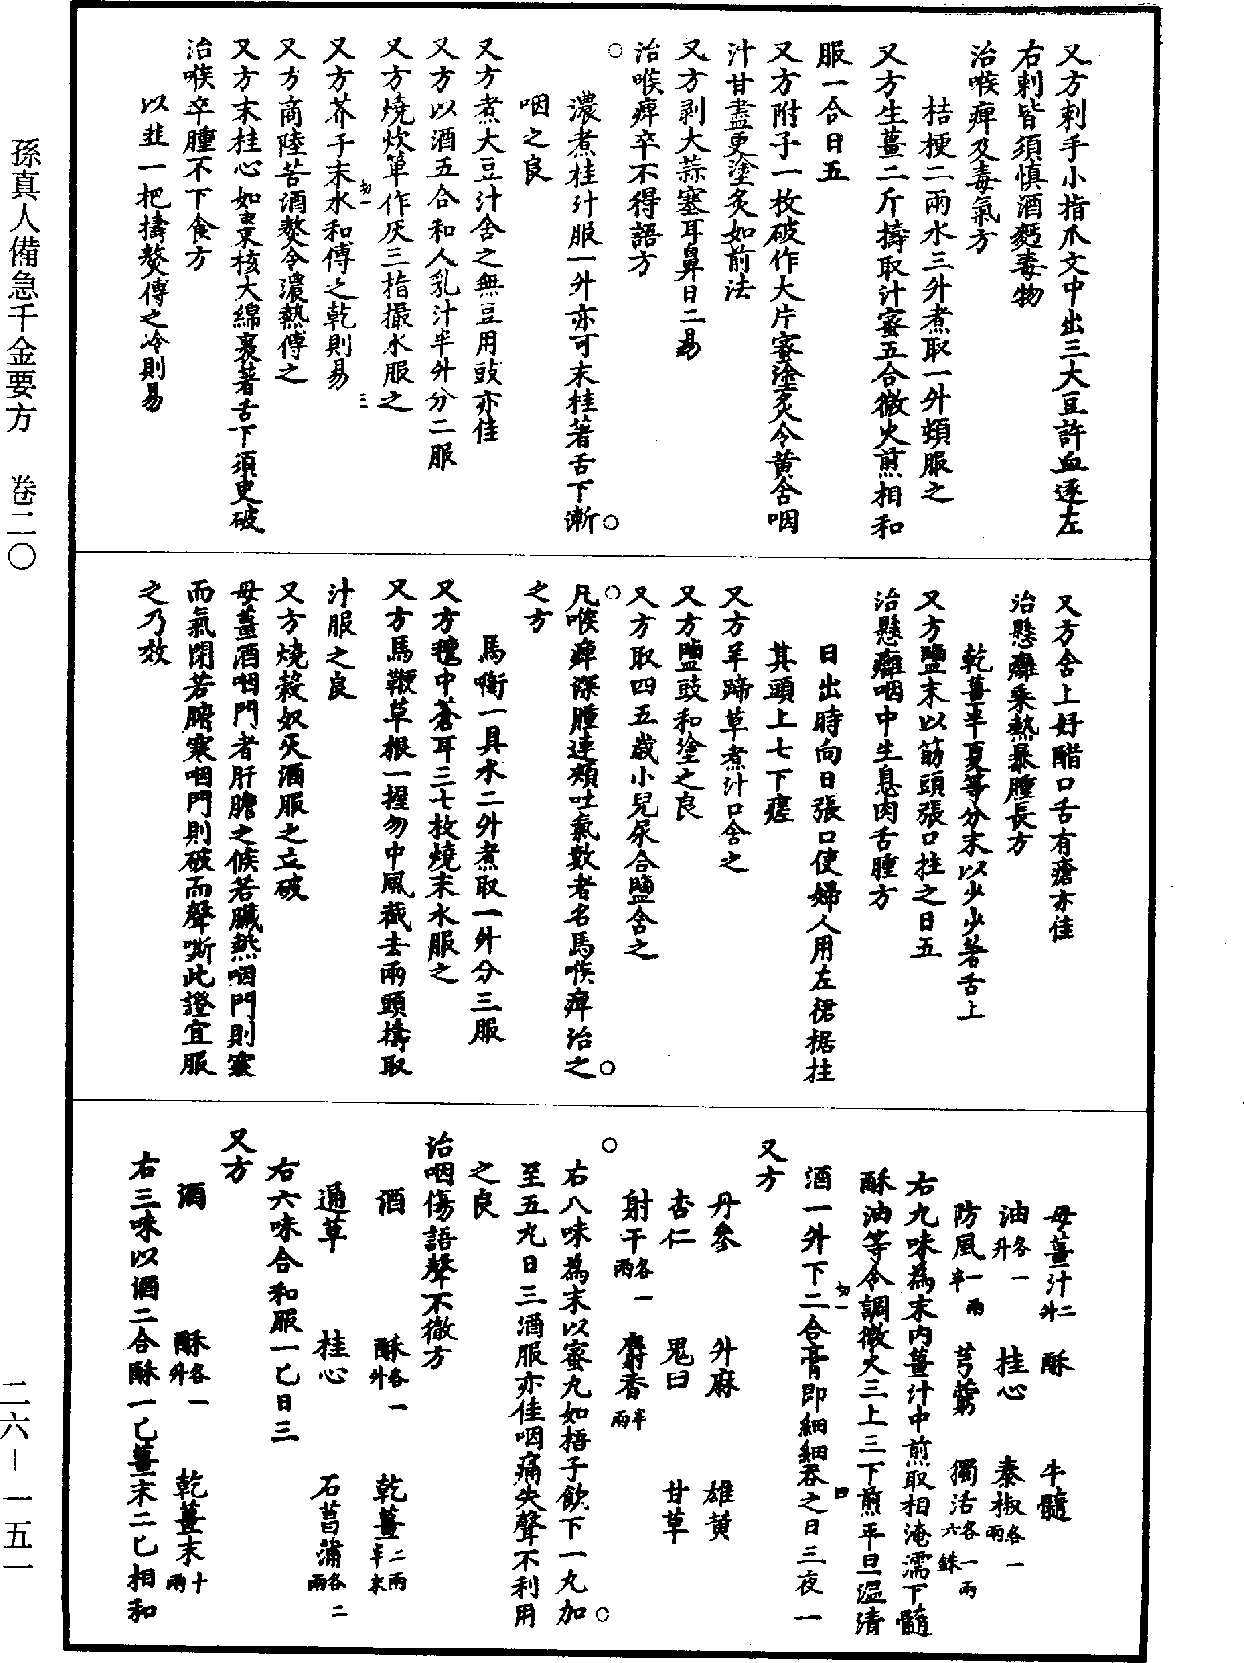 又方刺手小指爪文中出三大豆許血逐左
右刺皆須慎酒麪毒物
治喉痺及毒氣方
桔梗二兩水三升煮取一升頻服之
又方生薑二斤擣取汁蜜五合微火煎相和
服一合日五
又方附子一枚破作大片蜜塗炙令黃含咽
汁甘盡更塗炙如前法
又方剥大蒜塞耳鼻日二易
治喉痺卒不得語方
濃煮桂汁服一升亦可末桂著舌下漸
咽之良
又方煮大豆汁含之無豆用豉亦佳
又方以酒五合和人乳汁半升分二服
又方燒炊箄作灰三指撮水服之
又方芥子末水和傅之乾則易
又方商陸苦酒熬令濃熱傅之
又方末桂心如棗核大綿裹著舌下須臾破
治喉卒腫不下食方
以韭一把擣熬傅之冷則易
又方含上好醋口舌有瘡亦佳
治懸癰柔熱暴腫長方
乾薑半夏等分末以少少著舌上
又方鹽末以筋頭張口拄之日五
治懸癰咽中生息肉舌腫方
日出時向日張口使婦人用左裙裾拄
其頭上七下瘥
又方羊蹄草煮汁口含之
又方鹽豉和塗之良
又方取四五歲小兒尿合鹽含之
凡喉痺深腫連頰吐氣數者名馬喉痺治之
之方
馬銜一具水二升煮取一升分三服
又方氊中蒼耳三七枚燒末水服之
又方馬鞭草根一握勿中風截去兩頭擣取
汁服之良
又方燒穀奴灰酒服之立破
母薑酒咽門者肝膽之候若臟熱咽門則塞
而氣閉若腑寒咽門則破而聲嘶此證宜服
之乃效
母薑汁二升 酥 牛髓
油各一升 桂心 秦椒各一兩
防風一兩半 芎藭 獨活各一兩六銖
右九味為末内薑汁中煎取相淹濡下髓
酥油等令調微火三上三下煎平旦溫清
酒一升下二合膏即細細吞之日三夜一
又方
丹參 升麻 雄黃
杏仁 鬼臼 甘草
射干各一兩 麝香半兩
右八味為末以蜜丸如梧子飲下一丸加
至五丸日三酒服亦佳咽痛失聲不利用
之良
治咽傷語聲不徹方
酒 酥各一升 乾薑二兩半末
通草 桂心 石菖蒲各二兩
右六味合和服一匕日三
又方
酒 酥各一升 乾薑末十兩
右三味以酒二合酥一匕薑末二匕相和
孫真人備急千金要方 卷二〇
二六-一五一